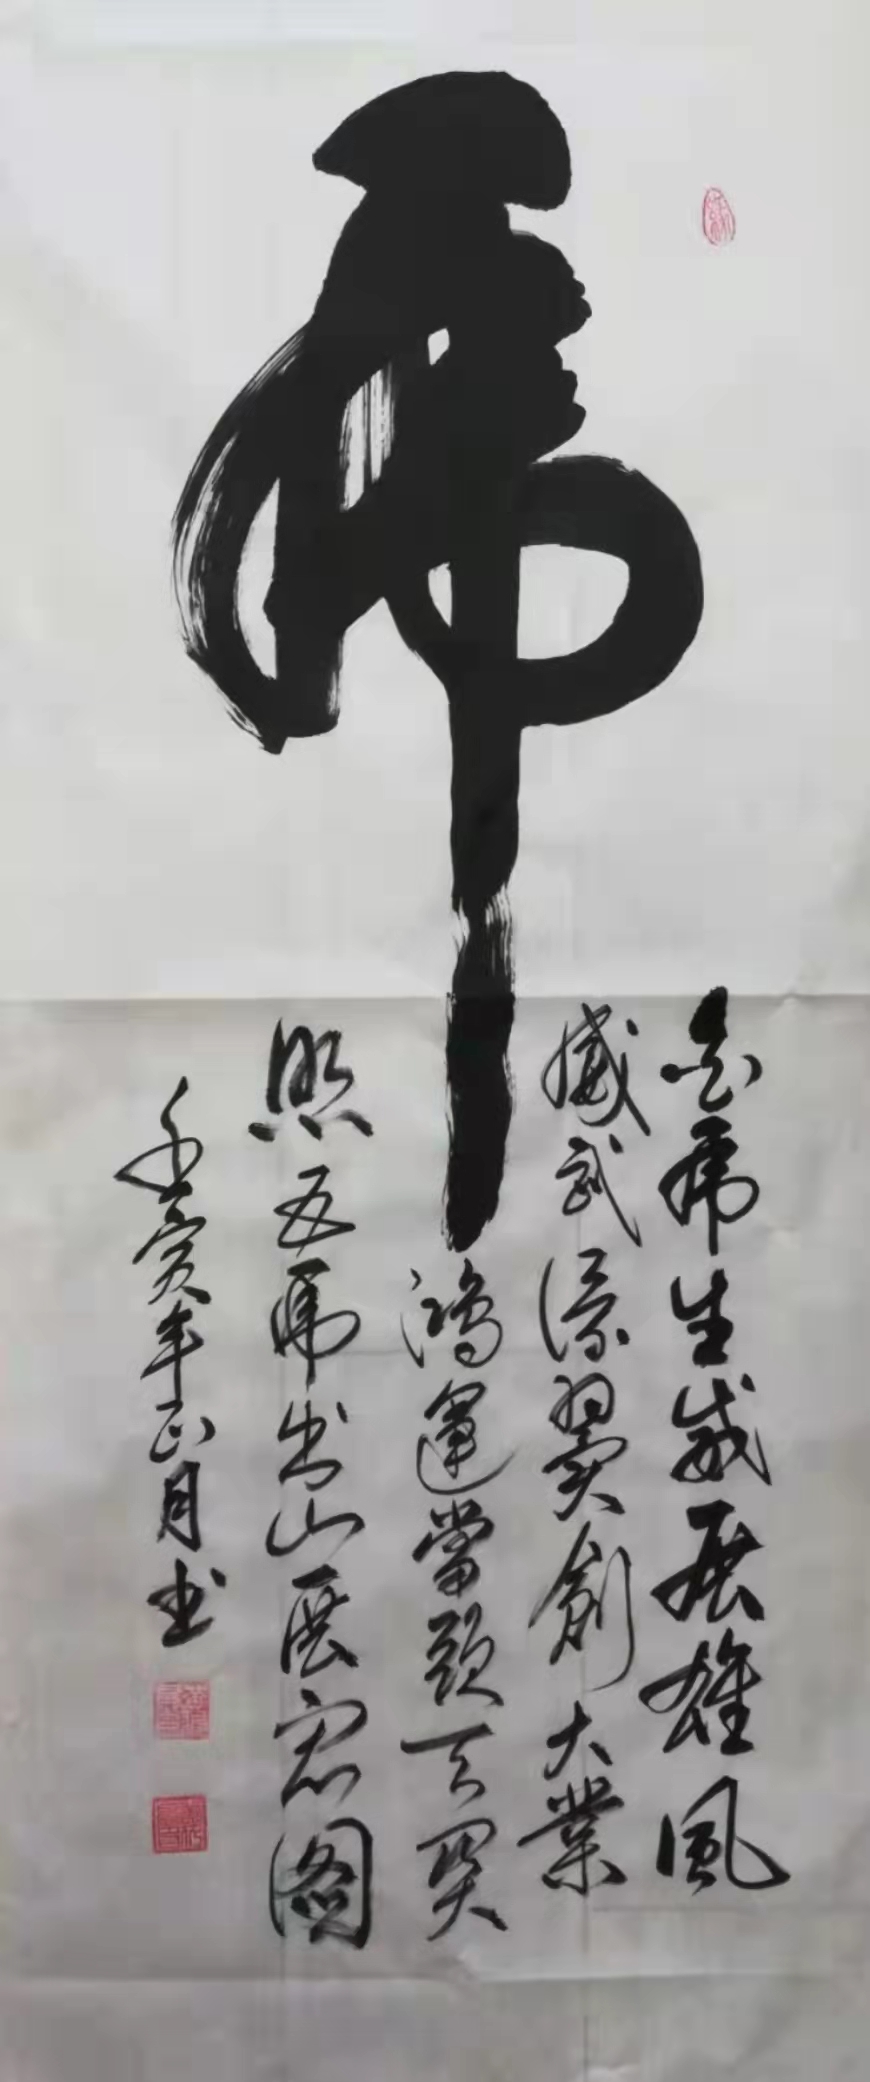 虎
虎生威展雄風
威武添翼創大業
鴻運當頭天
照五虎出山展宏圖
壬寅年正月书